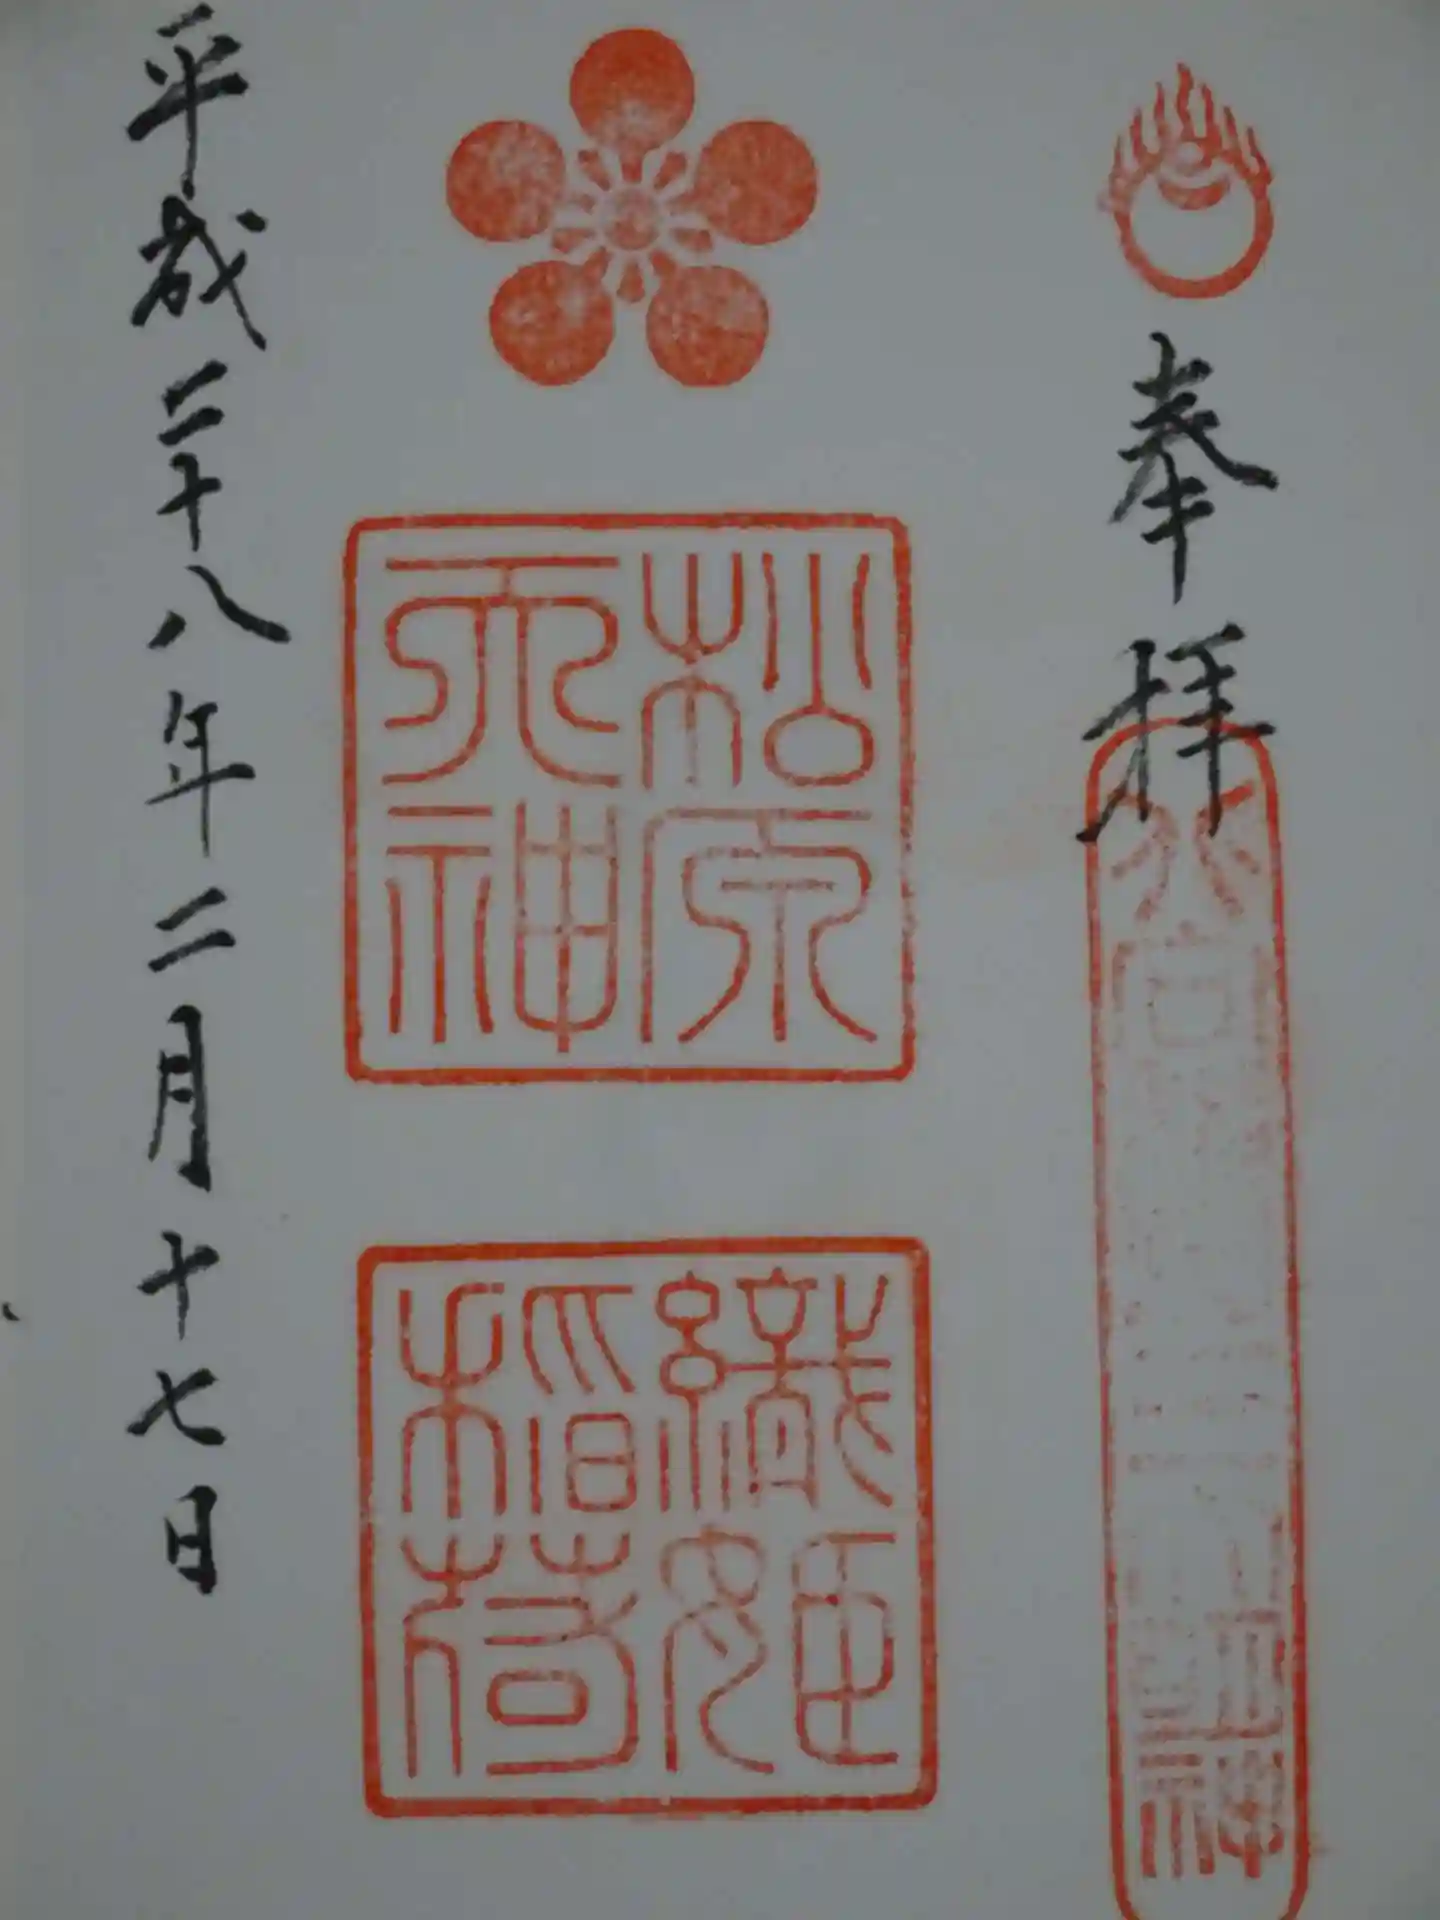 奉拝
松原
天神
織姫
稲荷
平成二十八年二月十七日